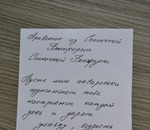 Приветик из Солнечной
Башкирии
Солнечной Беларуси
Пусть мои акварельки
поднимают тебе
настроение каждый
день и дарят
улыбку, радость